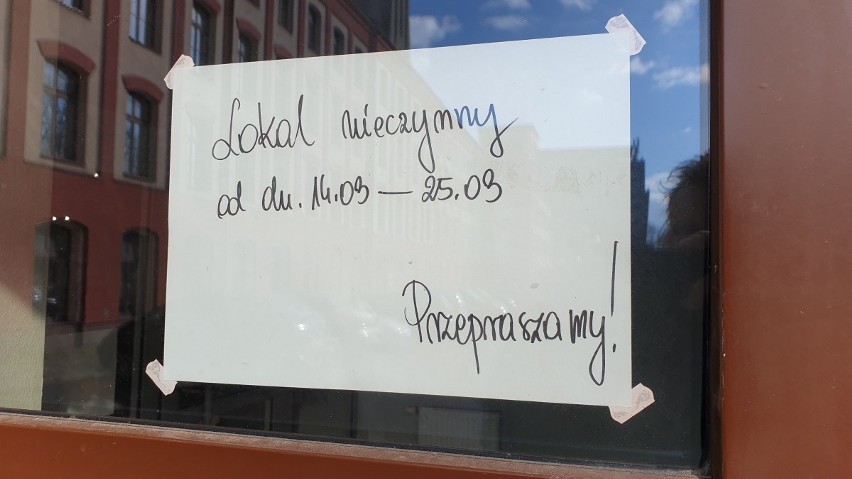 Lokal nieczynny
od dn. 14.03 — 25.03
Przepraszamy!